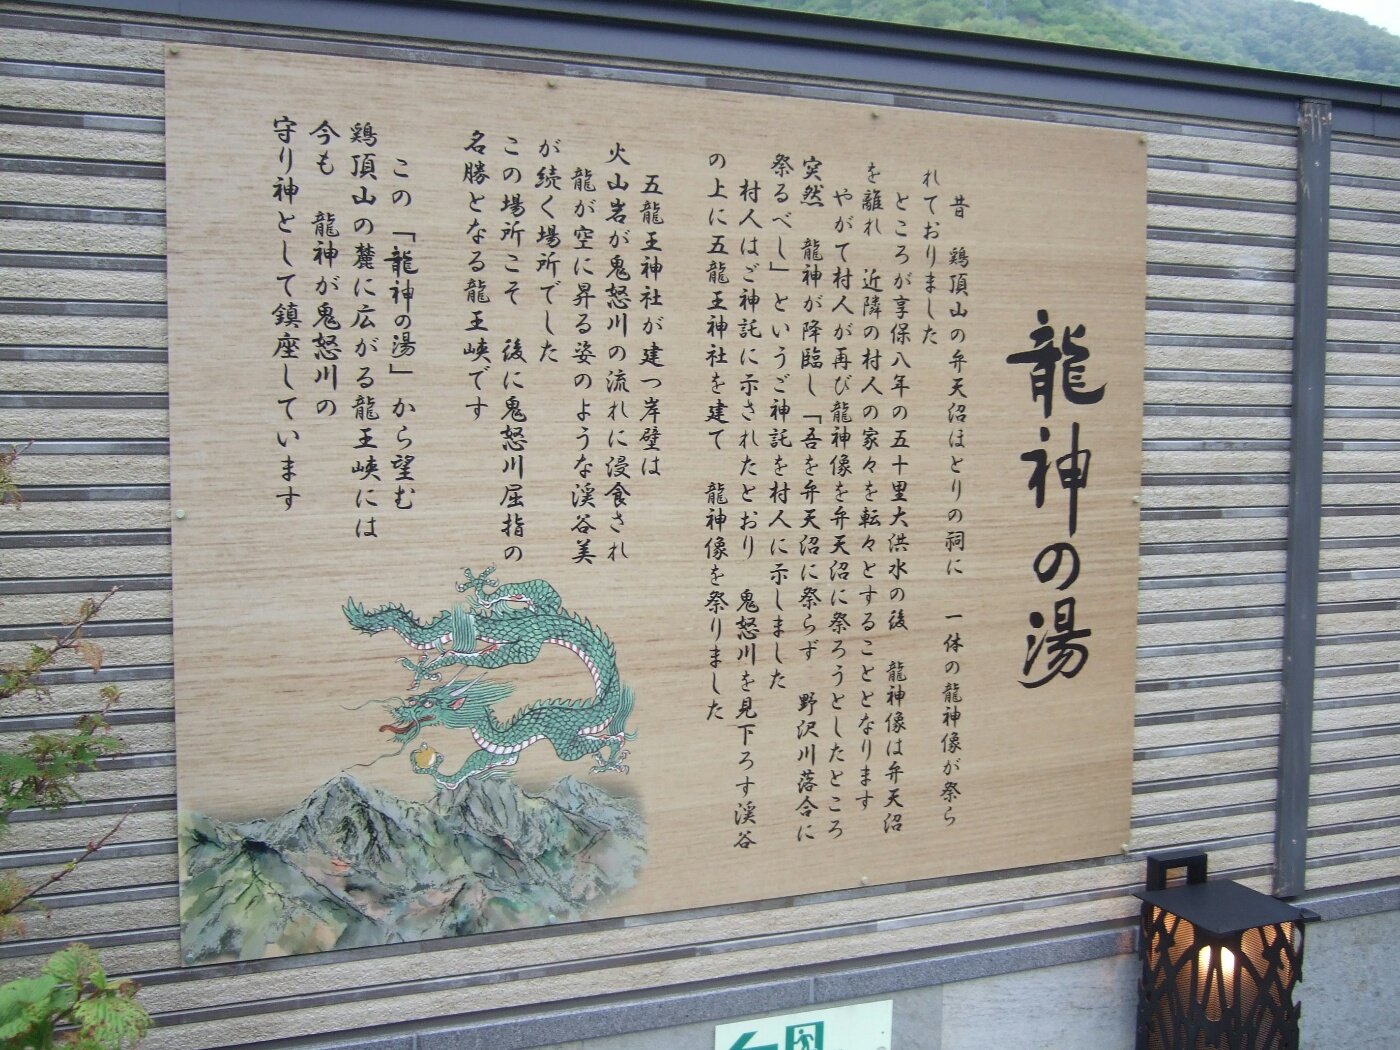 龍神の湯
昔　鶏頂山の弁天沼ほとりの祠に　一体の龍神像が祭ら
れておりました
ところが享保八年の五十里大洪水の後　龍神像は弁天沼
を離れ　近隣の村人の家々を転々とすることとなります
やがて村人が再び龍神像を弁天沼に祭ろうとしたところ
突然　龍神が降臨し「吾を弁天沼に祭らず　野沢川落合に
祭るべし」というご神託を村人に示しました
村人はご神託に示されたとおり　鬼怒川を見下ろす渓谷
の上に五龍王神社を建て　龍神像を祭りました
五龍王神社が建つ岸壁は
火山岩が鬼怒川の流れに浸食され
龍が空に昇る姿のような渓谷美
が続く場所でした
この場所こそ　後に鬼怒川屈指の
名勝となる龍王峡です
この「龍神の湯」から望む
鶏頂山の麓に広がる龍王峡には
今も　龍神が鬼怒川の
守り神として鎮座しています